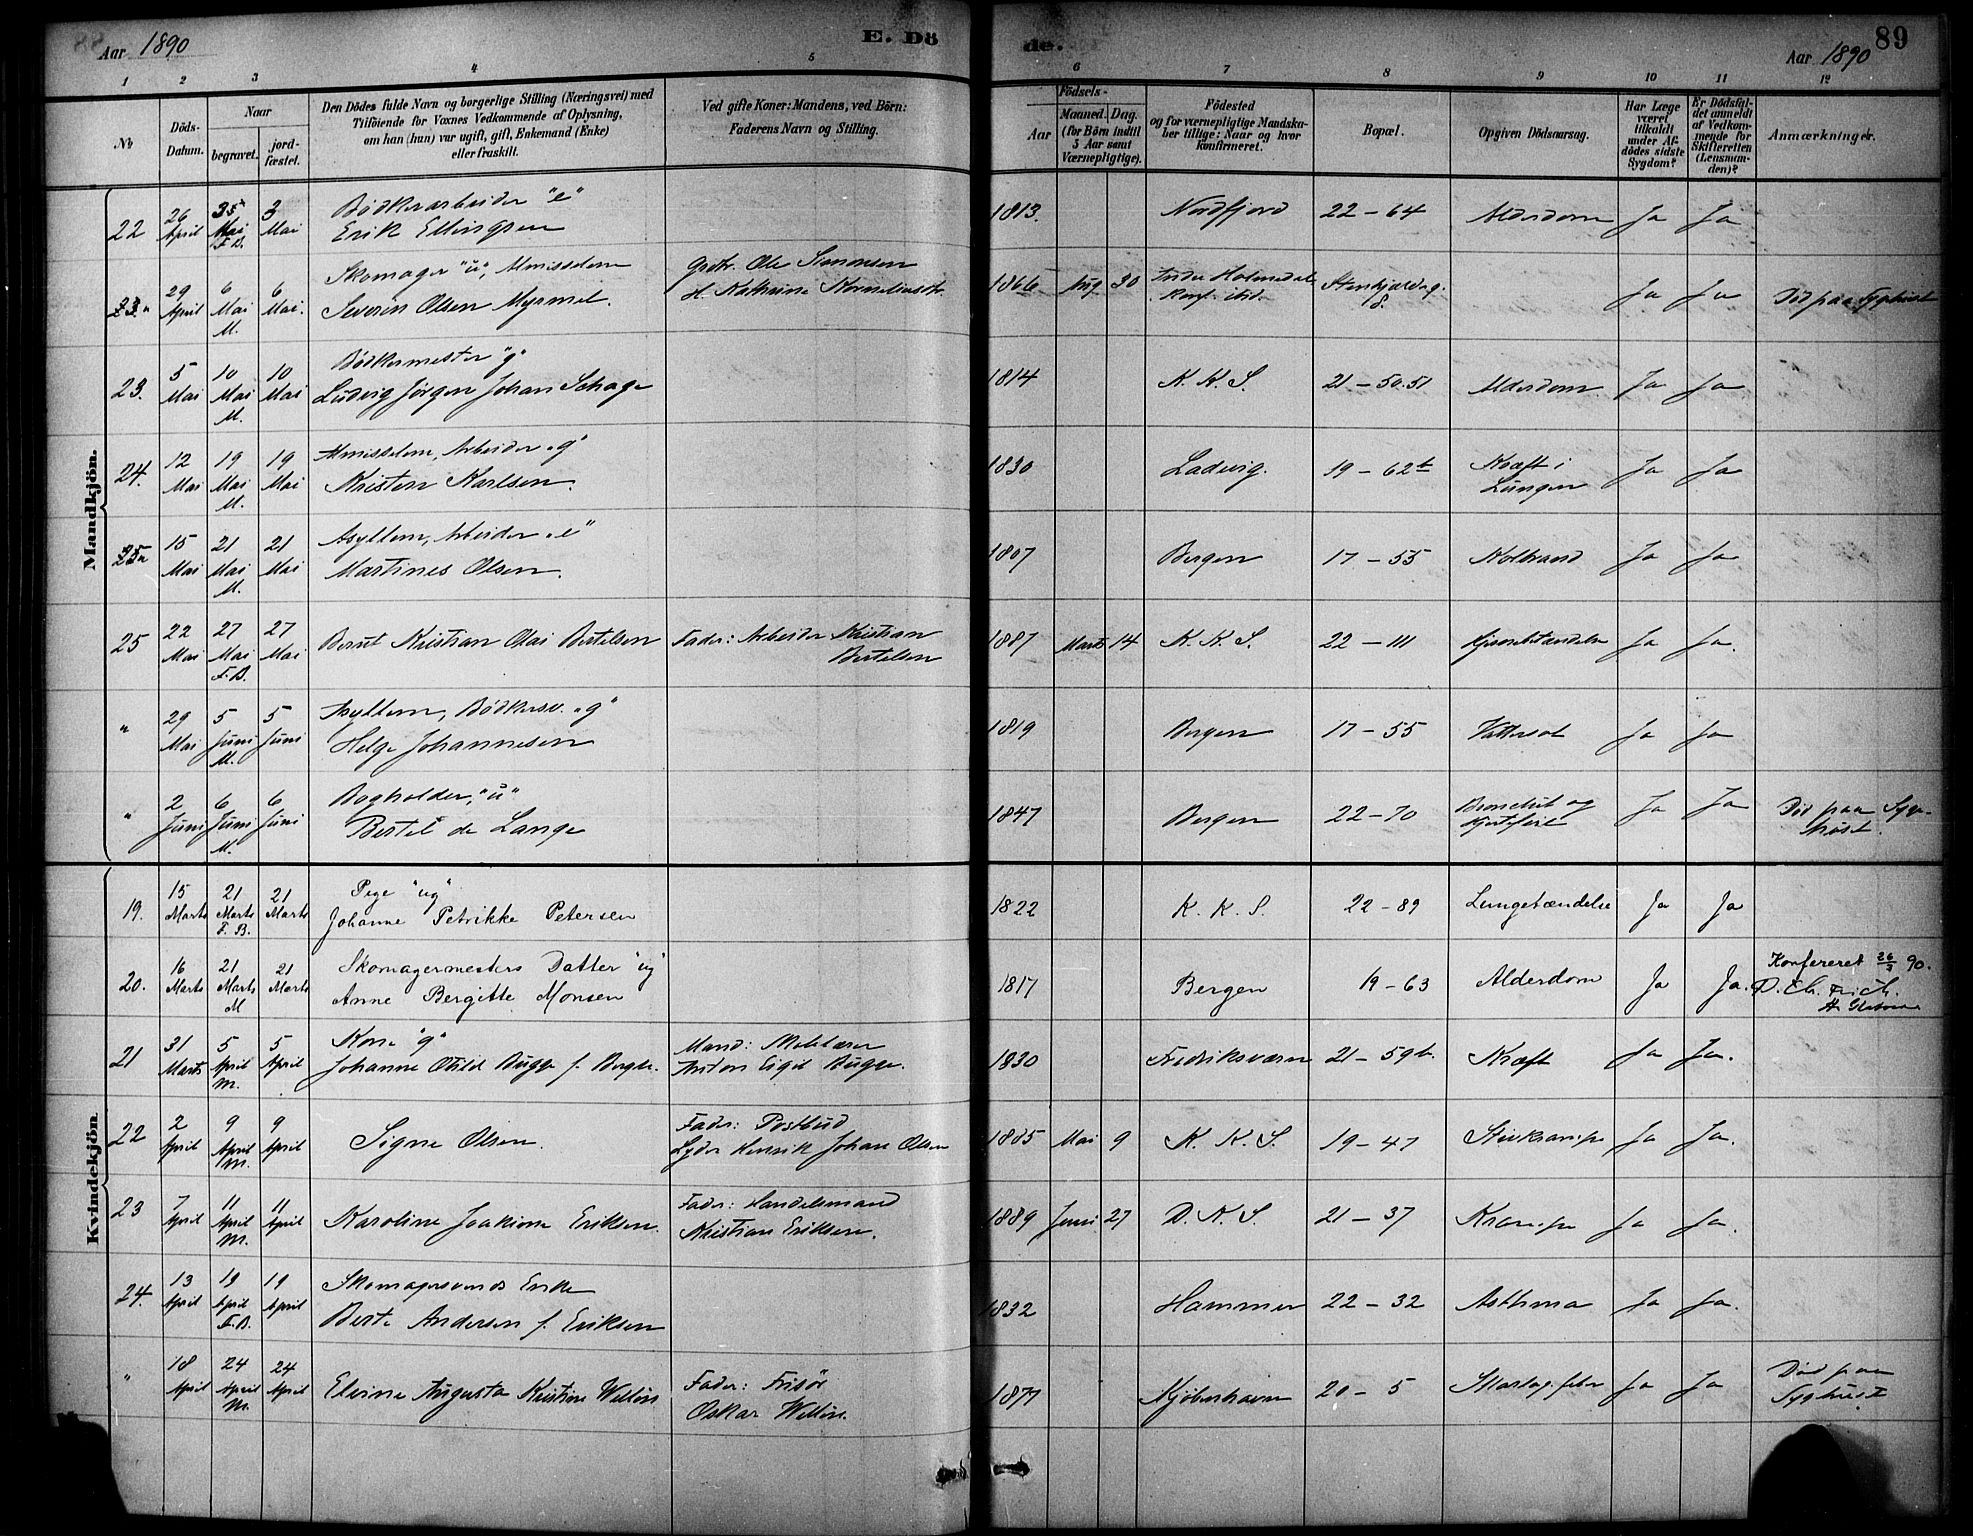 Aar 1890
E. Dö
de.
Aar 1890
89
1 2 3 4 5 6 7 8 9 10 11 12
No
Döds-Datum.
Naar
begravet.
jord-fæstet.
Den Dödes fulde Navn og borgerlige Stilling (Næringsvei) med
Tilföiende for Voxnes Vedkommende af Oplysning,
om han (hun) var ugift, gift, Enkemand (Enke)
eller fraskilt.
Ved gifte Koner: Mandens, ved Börn:
Faderens Navn og Stilling.
Födsels-
Aar
Maaned.
Dag.
(for Börn indtil
5 Aar samt
Værnepligtige).
Födested
og for værnepligtige Mandska-
ber tillige: Naar og hvor
konfirmeret.
Bopæl.
Opgiven Dödsaarsag.
Har Læge
været
tilkaldt
under Af-
dödes sidste
Sygdom?
Er Dödsfal-
det anmeldt
af Vedkom-
mende for
Skifteretten
(Lensman-
den)?
Anmærkninger.
Mandkjön.
22 26 April Mai F.B. 3 Mai Bödkerarbeider "e" 1813. Nordfjord 22-64 Alderdom Ja Ja
Erik Ellingsen
29 April 6 Mai M. 6 Mai. Skomager "u", Almisselem 1866 Aug 30 Indre Holmedal Ja Ja Död paa Syghust
Severin Olsen Myrmel. Ole Simonsen Konf. ibid. 8.
Kathrine
23. 5 Mai 10 Mai M. 10 Mai Bödkermester "g" 1814 K. K. S. 21-50.51 Alderdom. Ja Ja
Ludvig Jörgen Johan Schage
24. 12 Mai 19 Mai M. 19 Mai Almisselem, Arbeider "g" 1830 Ladvig. 19-62b Kræft i Ja Ja
Kristen Karlsen. Lungen
15 Mai 21 Mai M. 21 Mai Asyllem, Arbeider "e" 1807 Bergen 17-55 Koldbrand Ja Ja
Martines Olsen.
25 22 Mai 27 Mai F.B. 27 Mai Bernt Kristian Olai Bertelsen Fader: Arbeider Kristian 1887 Marts 14 K. K. S. 22-111 Hjernebetændelse Ja Ja.
Bertelsen
" 29 Mai 5 Juni M. 5 Juni Asyllem, Bödkersv. "g" 1819 Bergen 17-55 Vattersot Ja Ja
Helge Johannesen
" 2 Juni 6 Juni M. 6 Juni Bogholder, "u" 1847 Bergen 22-70 Bronchit og Ja Ja Död paa Syge-
Bertel de Lange Hjertefeil hust.
Kvindekjön.
19. 15 Marts 21 Marts F. B. 21 Marts Pige "ug" 1822 K. K. S. 22-89 Lungebetændelse Ja Ja
Johanne Petrikke Petersen
20. 16 Marts 21 Marts M 21 Marts Skomagermesters Datter "ug" 1817 Bergen 19-63 Alderdom Ja Ja. Konfereret 26/3 90.
Anne Bergitte Monsen
21 31 Marts 5 April M. 5 April Kone "g" Mand: 1830 Fredriksværn 21-59b. Kræft Ja Ja.
Johanne Otild Bugge f. Anton Eigil Bugge.
22 2 April 9 April M. 9 April Signe Olsen. Fader: Postbud 1885 Mai 9 K. K. S. 19-47 Ja Ja.
Lyder Henrik Johan Olsen
23 7 April 11 April M. 11 April Karoline Joakime Eriksen. Fader: Handelsmand 1889 Juni 27 D. K. S. 21-37 Krampe Ja Ja.
Kristian Eriksen.
24. 13 April 19 April F.B. 19 April Skomagersvends Enke 1832 Hammer 22-32 Asthma Ja Ja.
Berte Andersen f. Eriksen
" 18 April 24 April M. 24 April Elvine Augusta Kristine Fader: Frisör 1877 Kjöbenhavn 20-5 Skarlag.feber Ja Ja Död paa
Oskar Syghust